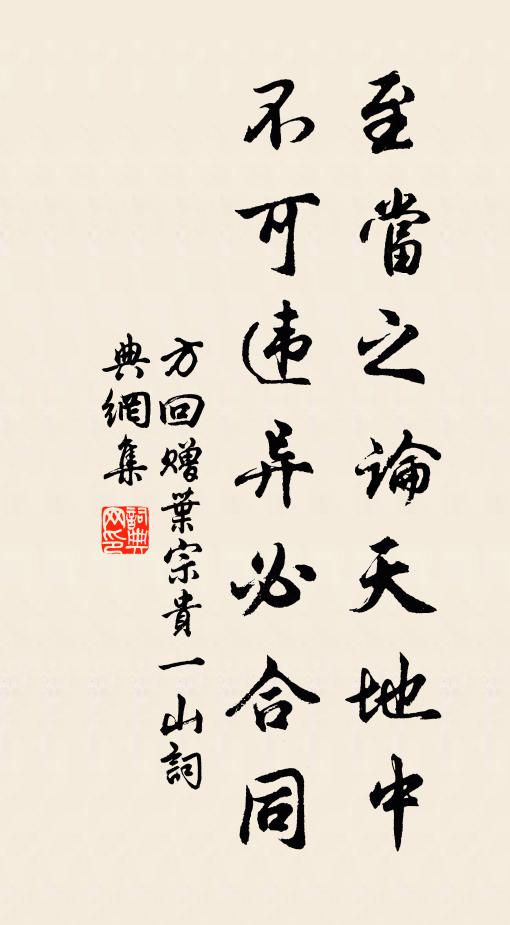 至當之論天地中
不可违异必合同
方回赠葉宗貴一山詞
典網集
詞典网印